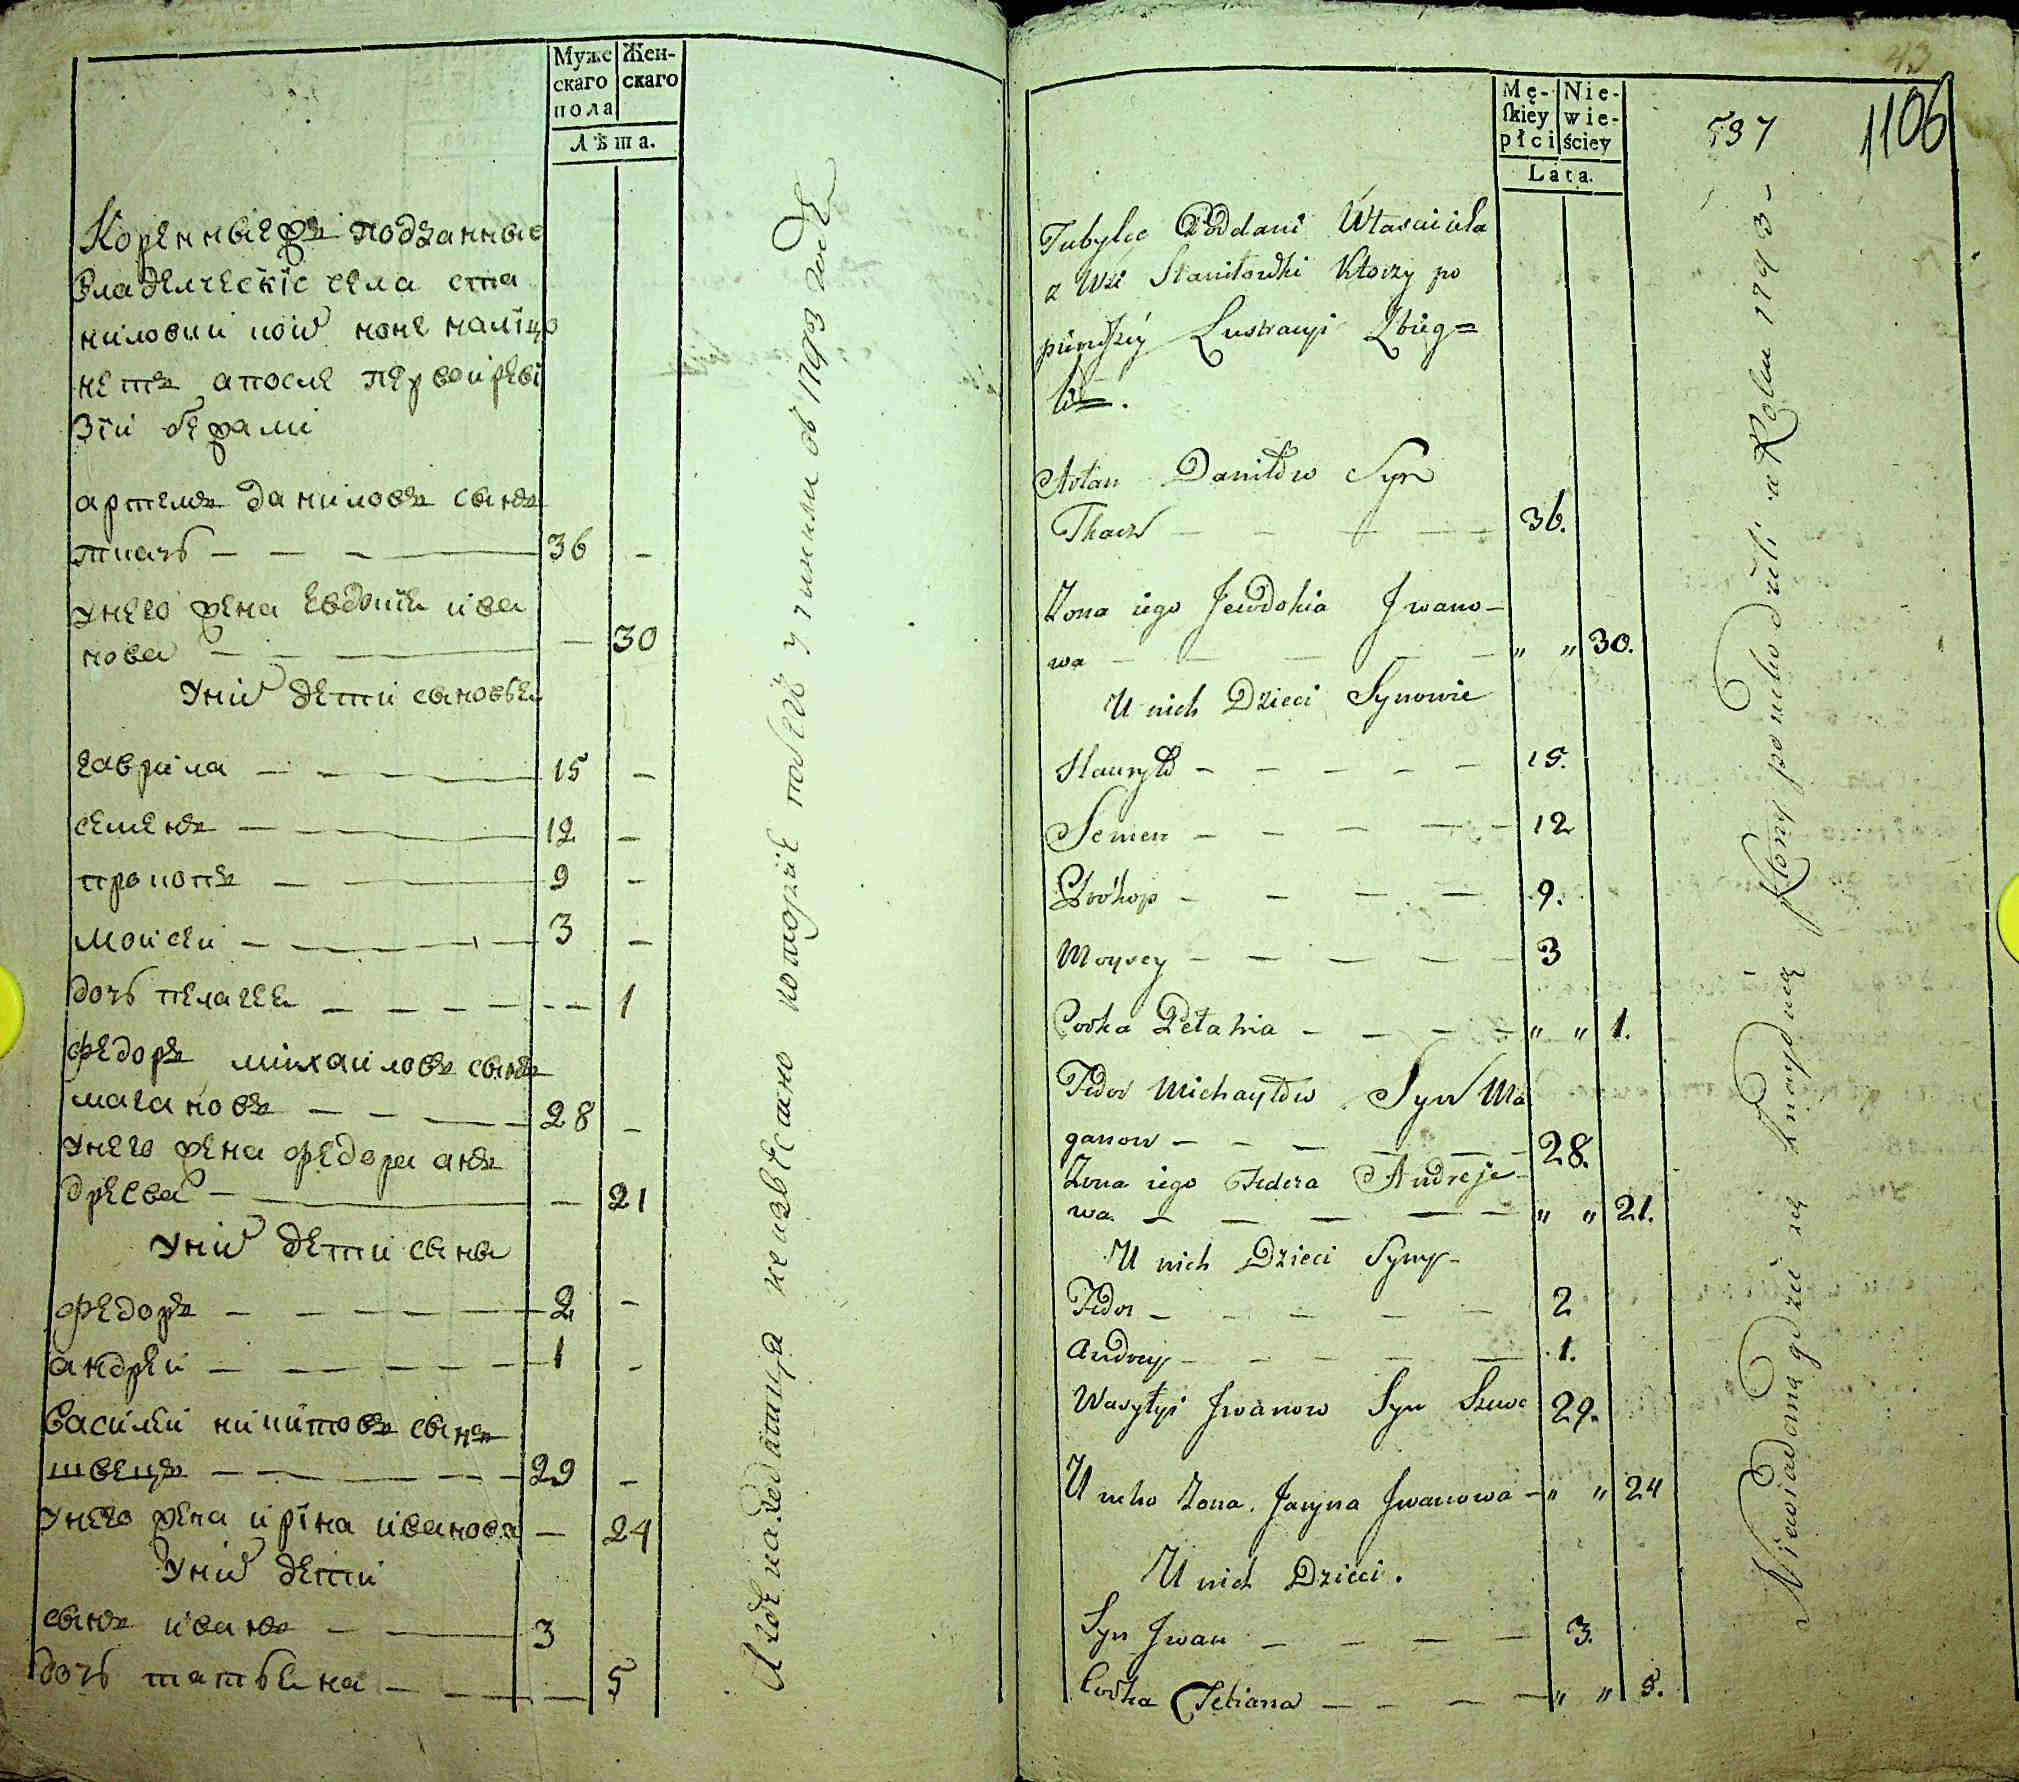 Муже
скаго
пола
Жен-
скаго
Лѣта.
Коренныежъ подданные
владелческïе села ста
ниловки коих ноне налïцо
нетъ а после первой реви
зïи бежали
артемъ даниловъ сынъ
ткачь — — — 36 —
унего жена евдокïя ива
нова — — — — 30
Уних дети сыновья
гаврила — — — 15 —
семенъ — — 12 —
прокопъ — — 9 —
моисеи — — — 3 —
дочь пелагея — — — — 1
федоръ михаиловъ сынъ
магановъ — — — 28 —
унего жена федора анъ
дреева — — — 21
уних дети сыны
федоръ — — — — 2 —
андреи — — — — 1 —
василеи никитовъ сынъ
швецъ — — — 29 —
унего жена ирïна иванова — 24
уних дети
сынъ иванъ — — 3
дочь татьяна — — — 5
А где находятца неизвесано которïе побегъ учинили въ 1793 годе
43
1106
537
Mę-
ſkiey
płci
Nie-
wie-
ściey
Lata.
Tubylce Poddani Własciciela
z Wsi Staniłowki Ktorzy po
pierwszey Lustracyi Zbieg=
li=.
Artem Daniłow Syn
Tkacz — — — — 36.
Zona iego Jewdokia Jwano-
wa — — — — — „ „ 30.
U nich Dzieci Synowie
Hauryło — — — — — 15.
Semen — — — — — 12
Prokop — — — — 9.
Moysey — — — — — 3
Corka Pełahia — — — — „ „ 1.
Fedor Michayłow Syn Ma
ganow — — — — — 28.
Zona iego Fedora Andreje-
wa. — — — — — „ „ 21.
U nich Dzieci Syny-
Fedor — — — — — 2
Andrey — — — — — 1.
Wasylyi Jwanow Syn Szwec 29.
U neho Zona Jaryna Jwanowa — „ „ 24
U nich Dzieci.
Syn Jwan — — — — 3.
Corka Tetiana — — — — „ „ 5.
Niewiadama gdzie się znayduią ktorzy pouchodzili w Roku 1793 —